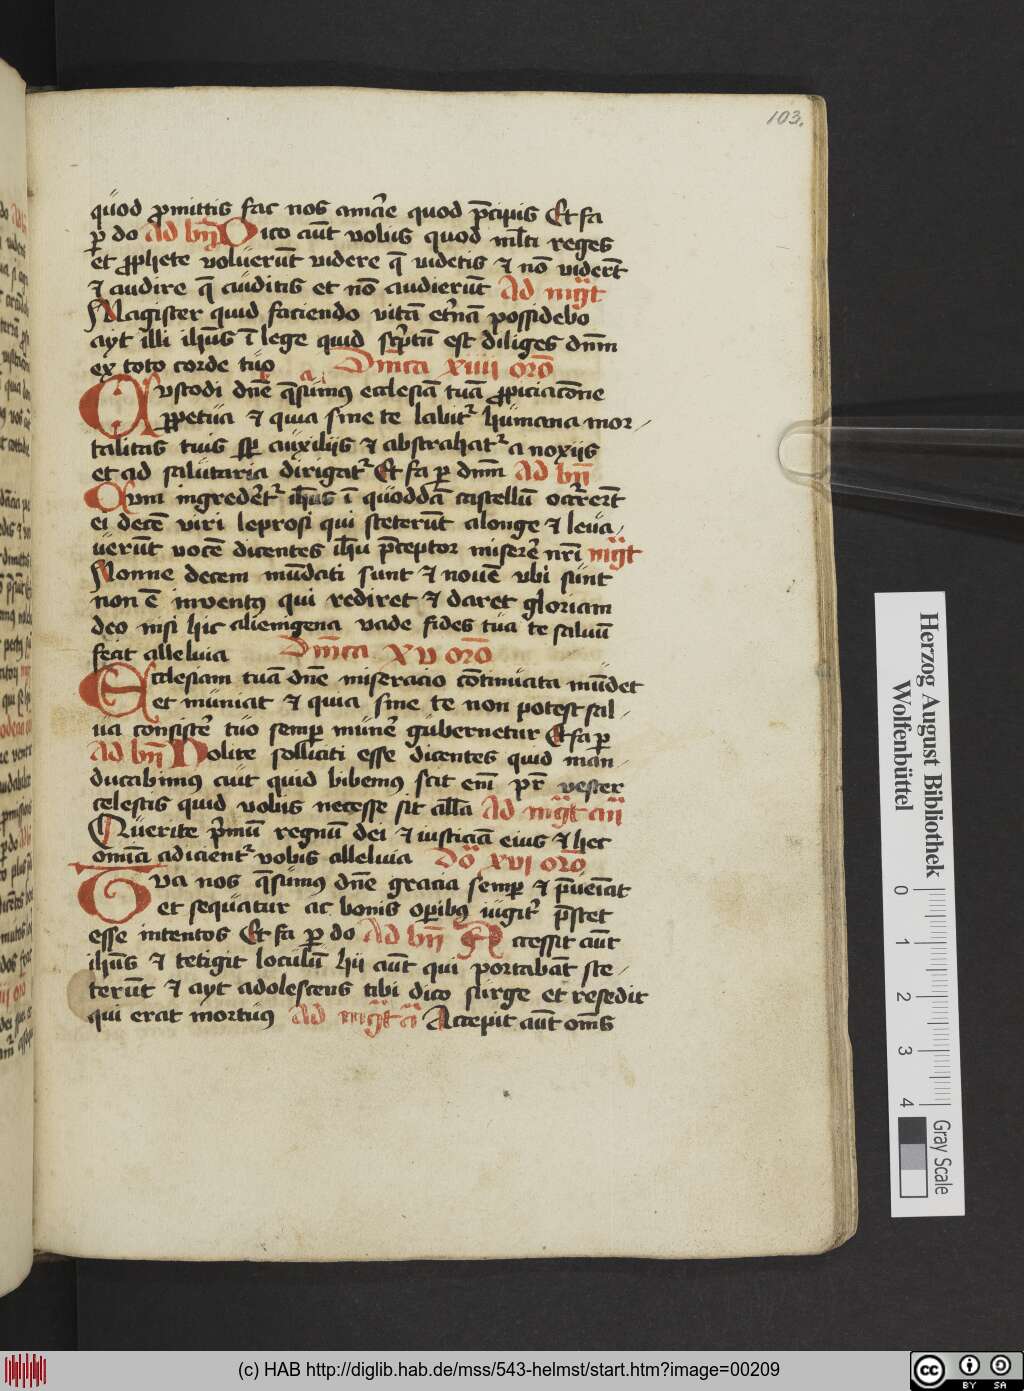 103.
quod ꝓmittis fac nos amãe quod p̃cipis Et fa
ꝑ do Ad bñ Dico aũt vobis quod ml̃ti reges
et ꝓphete voluerũt videre q̃ videtis ⁊ nõ viderũt
⁊ audire q̃ auditis et nõ audierũt Ad mg̃t
Magister quid faciendo vitã et̃nã possidebo
ayt illi ihũs ĩ lege quid sc̃ptũ est diliges dñm
ex toto corde tuo Dñica xiiii orõ
Custodi dñe q̃sumus ecclesiã tuã ꝓpiciacõne
ꝑpetua ⁊ quia sine te labit᷑ humana mor
talitas tuis sꝑ auxiliis ⁊ abstrahat᷑ a noxiis
et ad salutaria dirigat᷑ Et fa ꝑ dñm Ad bñ
Cum ingredet᷑ ihũs ĩ quoddã castellũ occ̃rerũt
ei decẽ viri leprosi qui steterũt alonge ⁊ leua
uerũt vocẽ dicentes ihũ p̃ceptor miserẽ nr̃i mg̃t
Nonne decem mũdati sunt ⁊ nouẽ vbi sunt
non ẽ inventꝰ qui rediret ⁊ daret gloriam
deo nisi hic alienigena vade fides tua te saluũ
fecit alleluia Dñica xv orõ
Ecclesiam tuã dñe miseracio cõtinuata mũdet
et muniat ⁊ quia sine te non potest sal
ua consistẽ tuo semꝑ munẽ gubernetur Et fa ꝑ
Ad bñ Nolite solliciti esse dicentes quid man
ducabimus aut quid bibemꝰ scit em̃ pr̃ vester
celestis quid vobis necesse sit all̃a Ad mg̃t añ
Querite p̃mũ regnũ dei ⁊ iusticiã eius ⁊ hec
om̃ia adicient᷑ vobis alleluia dõ xvi orõ
Tua nos q̃sumꝰ dñe gracia semꝑ ⁊ p̃ueiat
et sequatur ac bonis oꝑibꝰ iugit᷑ p̃stet
esse intentos Et fa ꝑ do Ad bñ Accessit aũt
ihũs ⁊ tetigit loculũ hii aũt qui portabãt ste
terũt ⁊ ayt adolescens tibi dico surge et resedit
qui erat mortuus Ad mg̃t a Accepit aũt om̃s
Herzog August Bibliothek
Wolfenbüttel
0 1 2 3 4
Gray Scale
(c) HAB http://diglib.hab.de/mss/543-helmst/start.htm?image=00209
cc BY SA